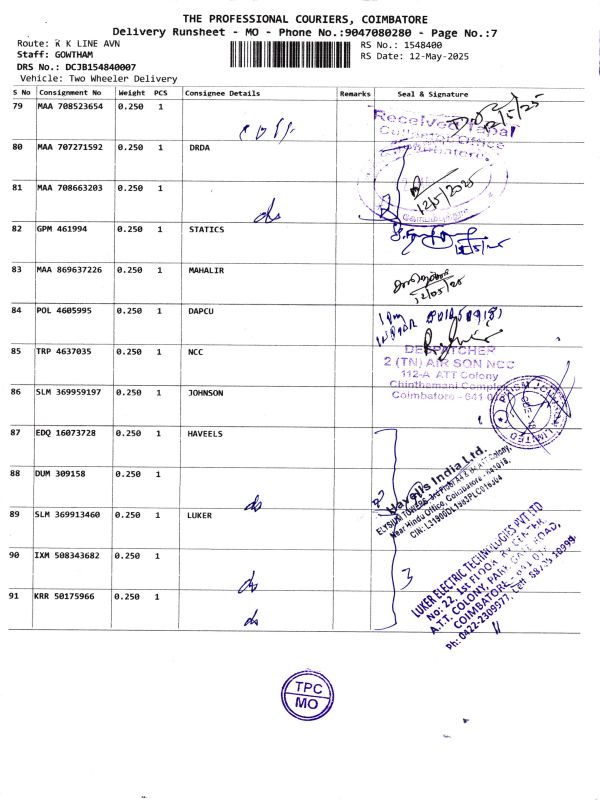 THE PROFESSIONAL COURIERS, COIMBATORE
Delivery Runsheet - MO - Phone No.:9047080280 - Page No.:7
Route: K K LINE AVN
RS No.: 1548400
Staff: GOWTHAM
RS Date: 12-May-2025
DRS No.: DCJB154840007
Vehicle: Two Wheeler Delivery
S No Consignment No Weight PCS Consignee Details Remarks Seal & Signature
79 MAA 708523654 0.250 1
12/5/25
Received Tapal
80 MAA 707271592 0.250 1 DRDA
81 MAA 708663203 0.250 1
12/5/2025
ds
82 GPM 461994 0.250 1 STATICS
83 MAA 869637226 0.250 1 MAHALIR
12/05/25
84 POL 4605995 0.250 1 DAPCU
85 TRP 4637035 0.250 1 NCC
DESPATCHER
2 (TN) AIR SQN NCC
112-A ATT Colony
Chinthamani Complex
Coimbatore - 641 0
86 SLM 369959197 0.250 1 JOHNSON
87 EDQ 16073728 0.250 1 HAVEELS
Havells India Ltd.
88 DUM 309158 0.250 1
ds
Near Hindu Office, Coimbatore - 641018.
89 SLM 369913460 0.250 1 LUKER
90 IXM 508343682 0.250 1
ds
3
91 KRR 50175966 0.250 1
ds
LUKER ELECTRIC TECHNOLOGIES PVT LTD
No: 22, 1st FLOOR,
A.T.T. COLONY,
COIMBATORE -
Ph: 0422-2309977,
TPC
MO